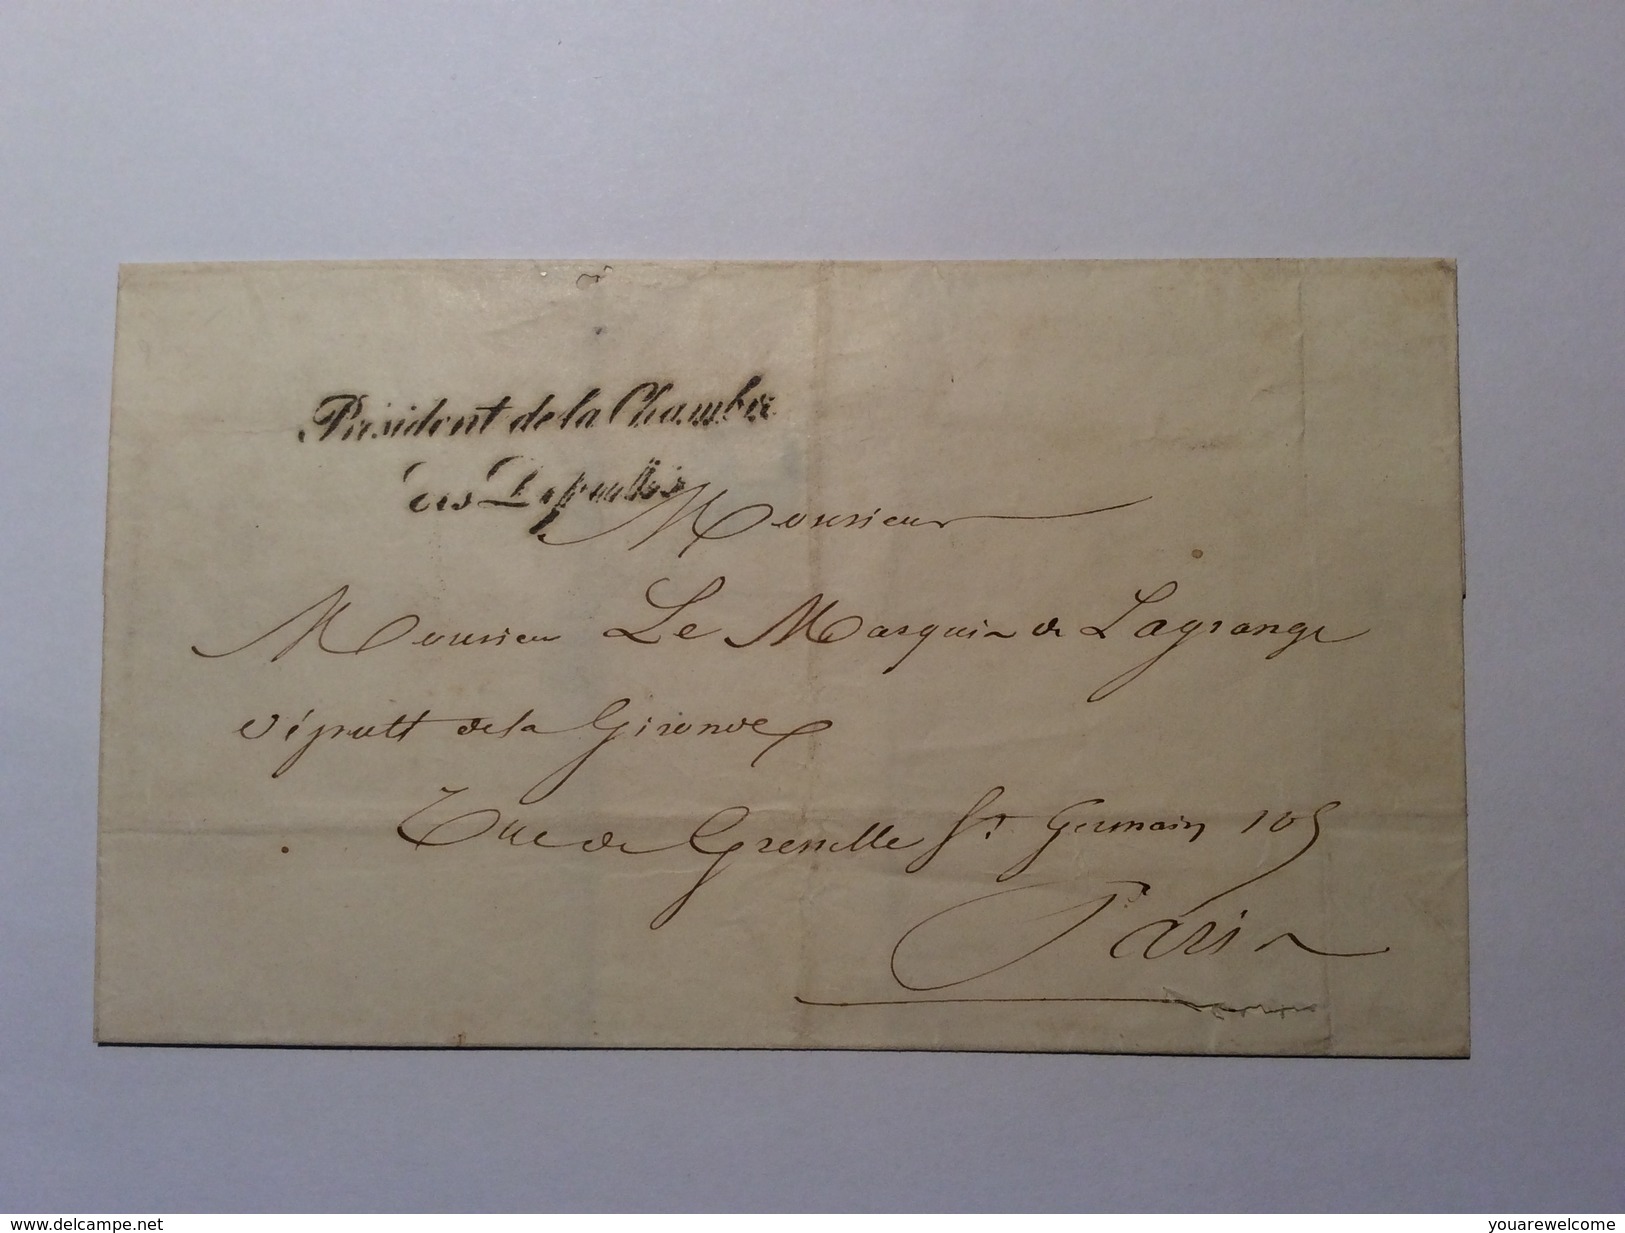 Président de la Chambre
des Députés
Monsieur
Monsieur Le Marquis de Lagrange
député de la Gironde
Rue de Grenelle St Germain 105
Paris
delcampe.net
youarewelcome